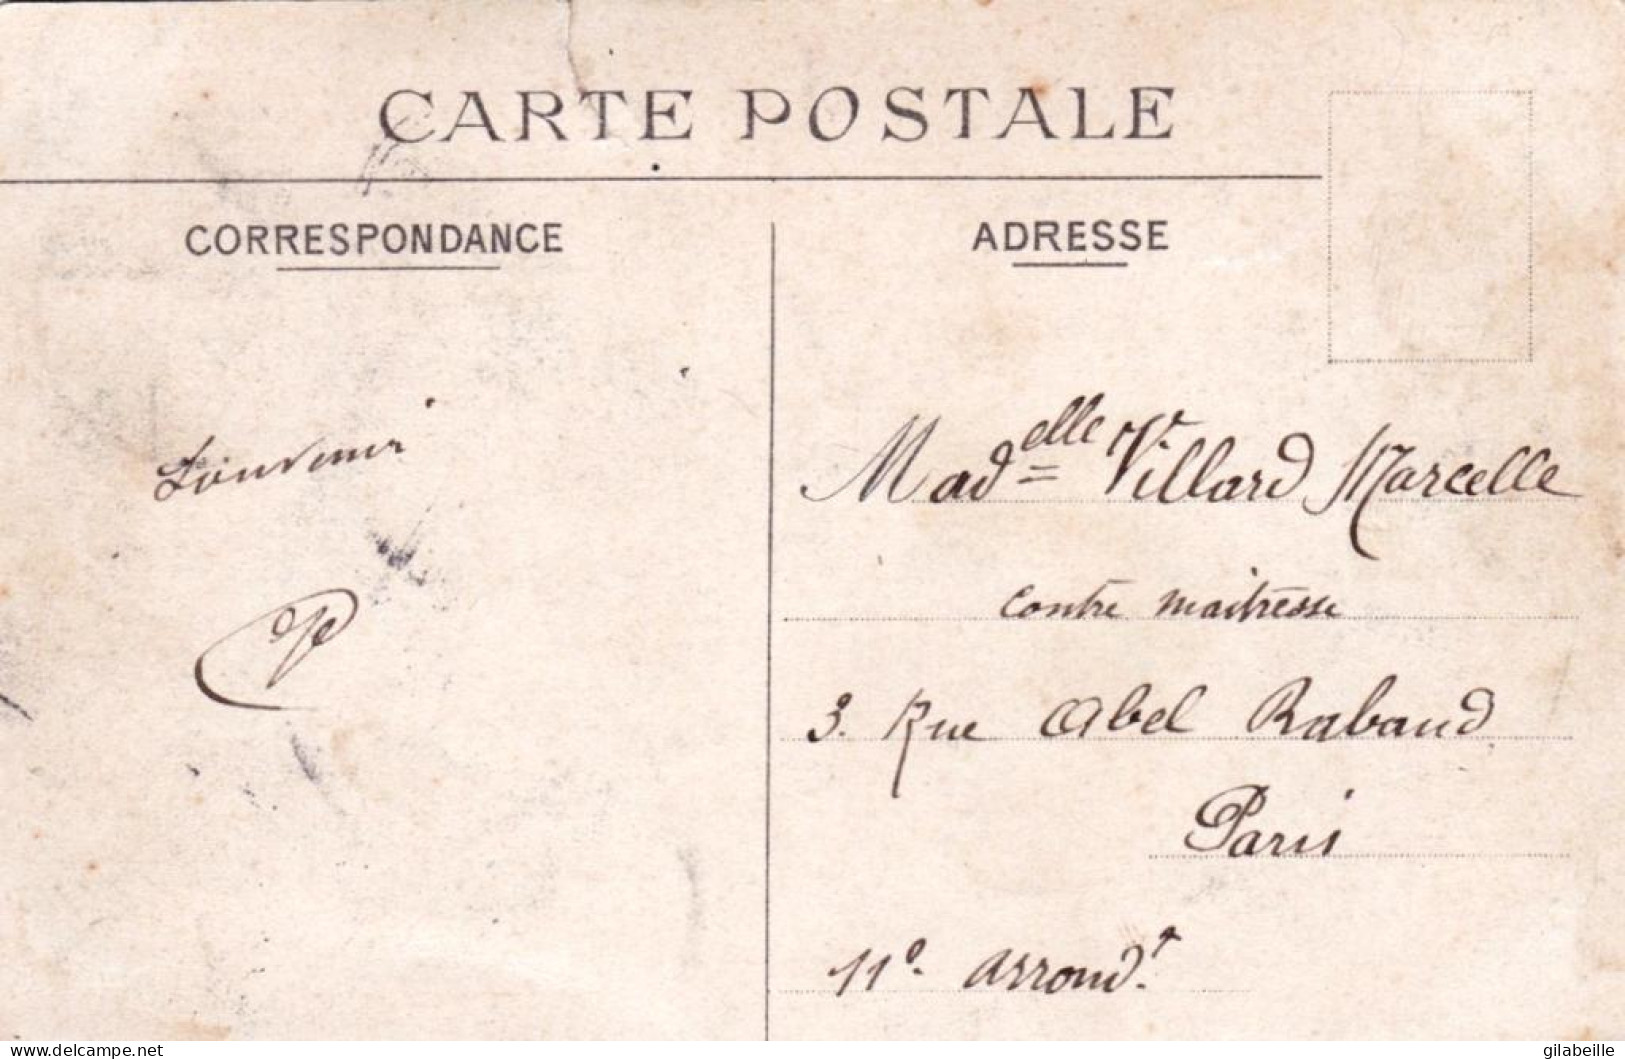 CARTE POSTALE
CORRESPONDANCE
ADRESSE
Souvenir
Madelle Villard Marcelle
contre maitresse
3. Rue Abel Rabaud
Paris
11e. arrondt.
www.delcampe.net
gilabeille